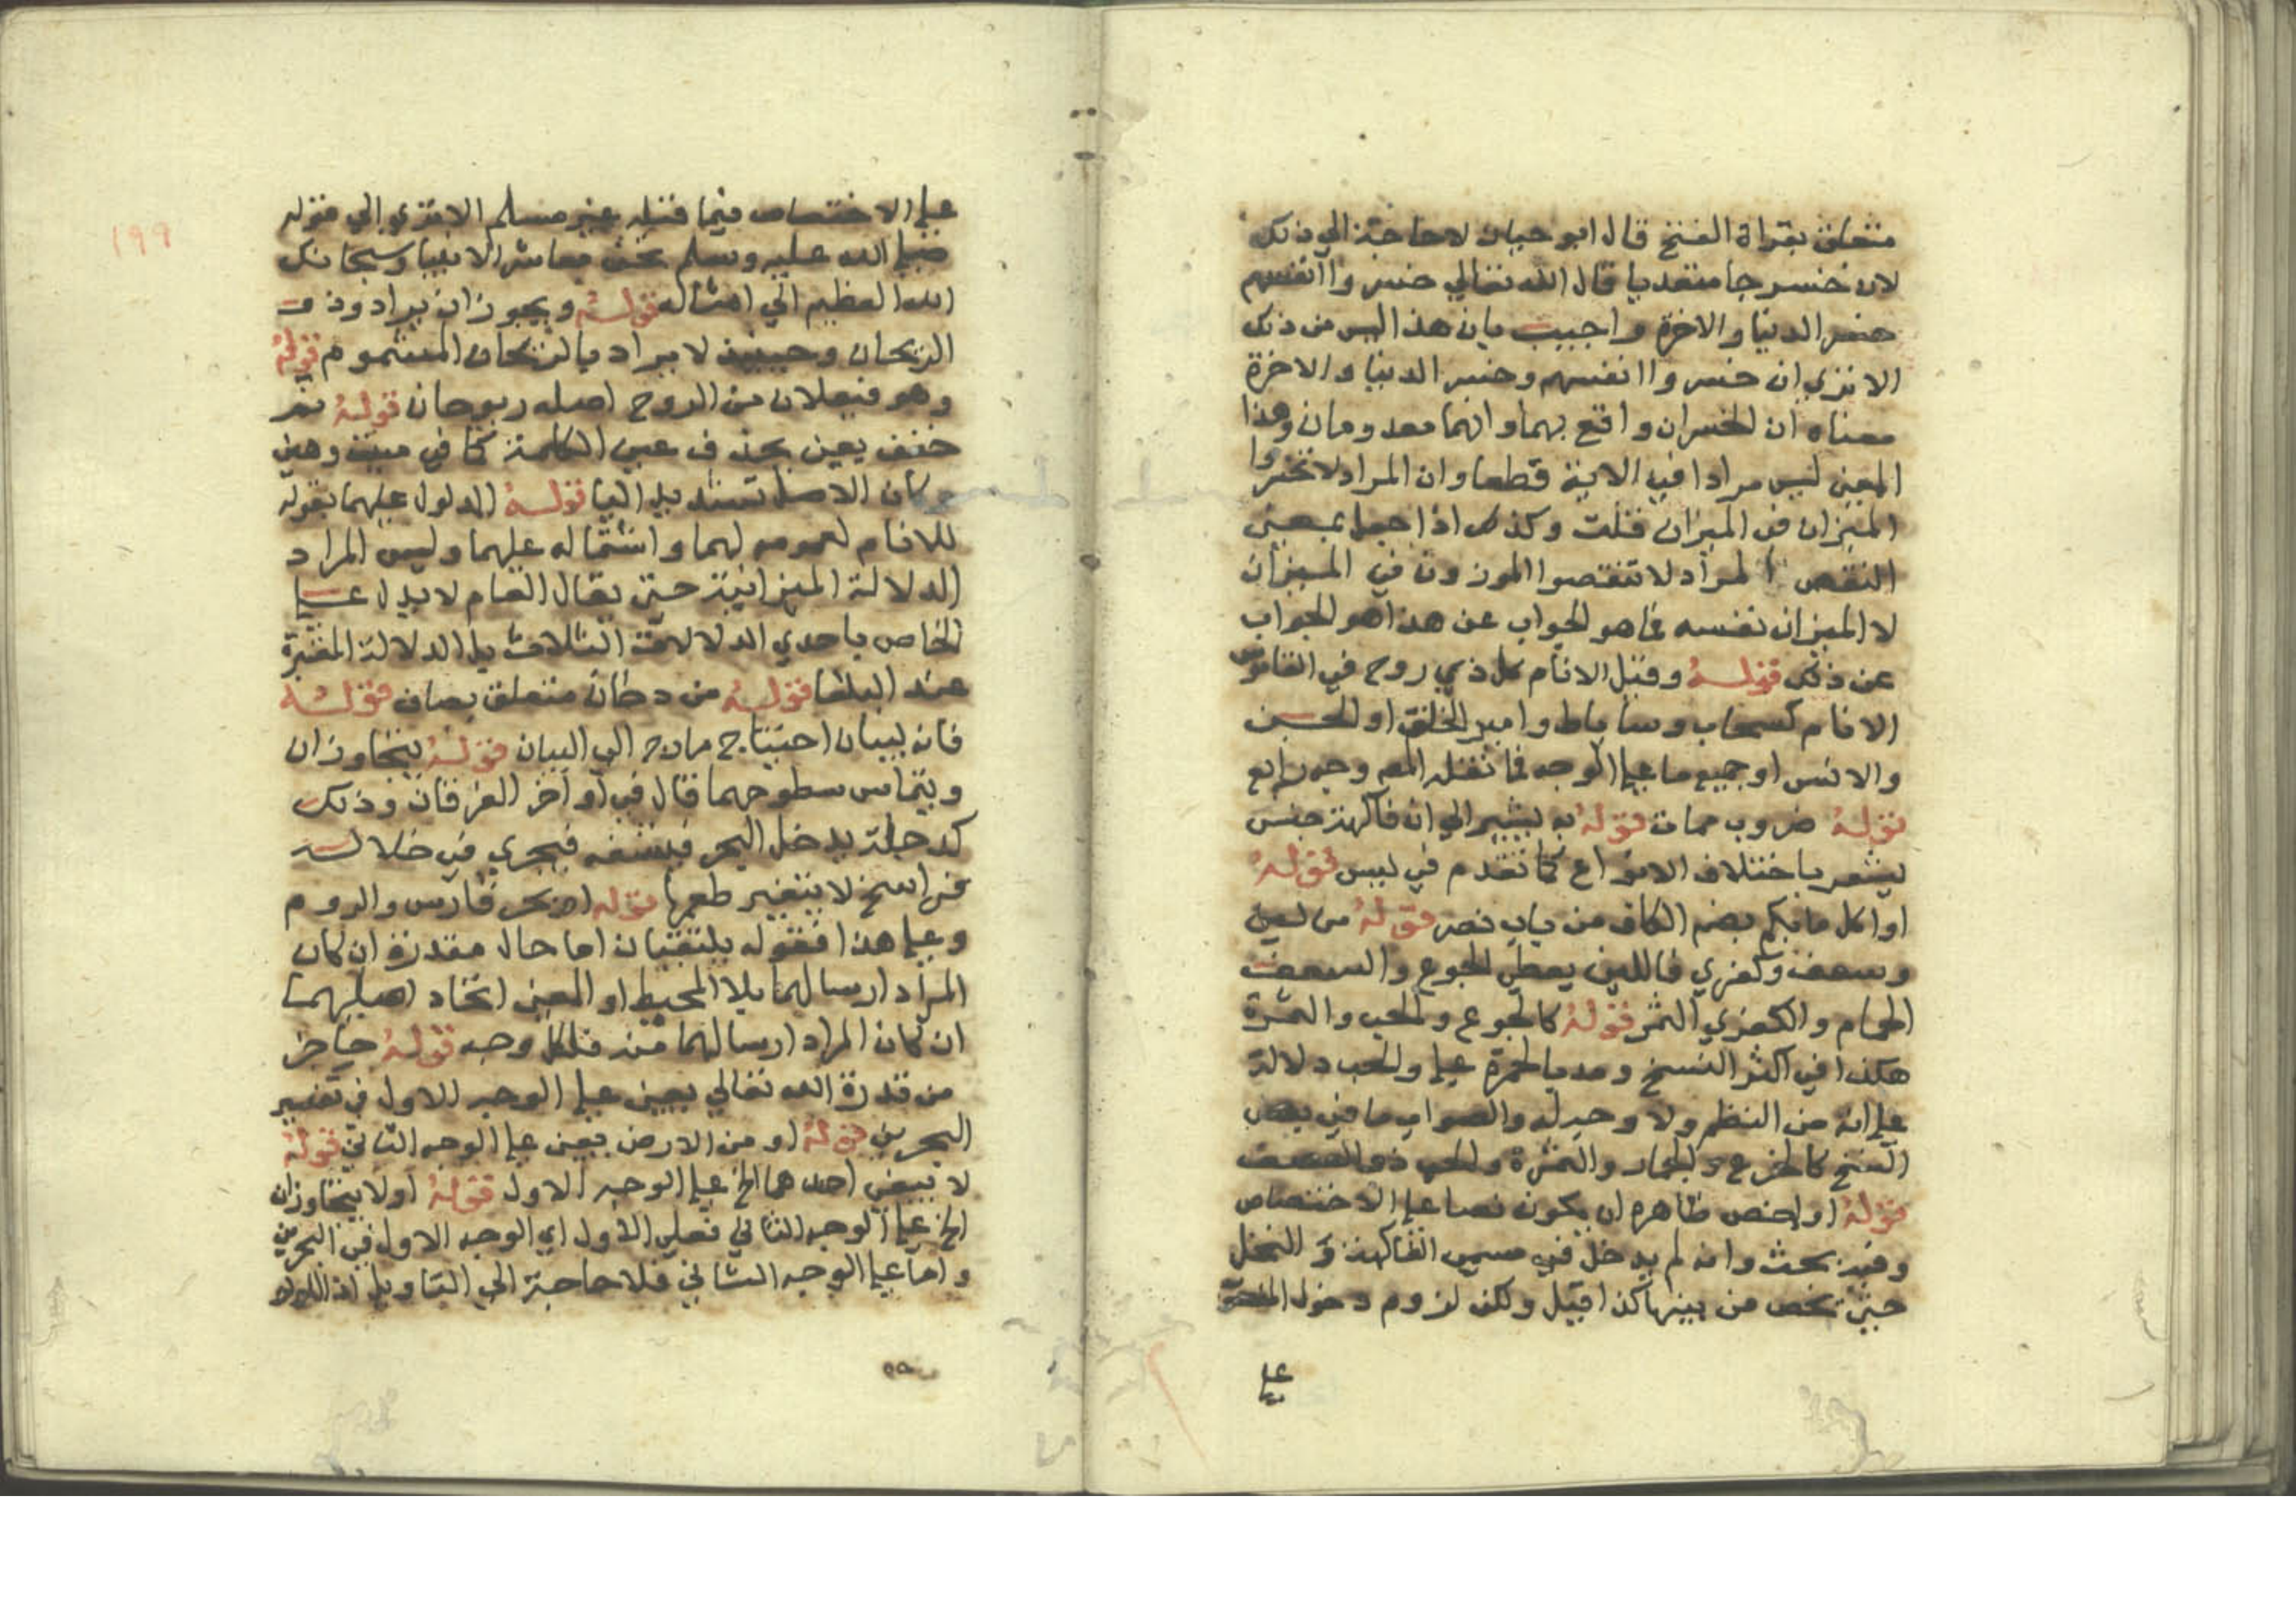 متعلق بقراة الفتح قال ابو حيان لا حاجة الي ذلك
لان خسر جا متعديا قال الله تعالي خسروا انفسهم
خسر الدنيا والاخرة واجيب بان هذا ليس من ذلك
الا تري ان خسروا انفسهم وخسر الدنيا والاخرة
معناه ان الخسران واقع بهما وانهما معدومان وهذا
المعني ليس مرادا في الاية قطعا وان المراد لا تخسروا
الميزان في الميزان قلت وكذلك اذا جعل بمعني
النقص المراد لا تنقصوا الموزون في الميزان
لا الميزان نفسه فما هو الجواب عن هذا هو الجواب
عن ذلك قوله وقيل الانام كل ذي روح في القاموس
الانام كسحاب وساباط وامير الخلق او الجن
والانس او جميع ما علي الوجه فما نقله المص وجه رابع
قوله ضروب مما قوله به يشير الي ان فاكهة جنس
يشعر باختلاف الانواع كما تقدم في ليس قوله
او اكل ما بكم بضم الكاف من باب نصر قوله من ليف
وسعف وكفري فالليف يعطي الجوع والسعف
الجمام والكفري الثمر قوله كالجوع والحب والثمرة
هكذا في اكثر النسخ ومد بالحمرة علي والحب دلالة
علي انه من النظم ولا وجه له والصواب ما في بعض
النسخ كالجزع والجمار والثمرة والحب ذو العصف
قوله او اخص ظاهره ان يكون نصبا علي الاختصاص
وفيه بحث وانه لم يدخل في مسمي الفاكهة و النخل
حتي تخص من بينها كذا قيل ولكن لزوم دخول المنصوب
علي
١٩٩
علي الاختصاص فيما قبله غير مسلم الا تري الي قوله
صلي الله عليه وسلم نحن معاشر الانبيا وسبحانك
الله العظيم الي امثاله قوله ويجوز ان يراد وذ
الريحان وحينئذ لا يراد بالريحان المشموم قوله
وهو فيعلان من الروح اصله ريوحان قوله ثم
خفف يعني بحذف عين الكلمة كما في ميت وهين
وكان الاصل تشديد اليا قوله المدلول عليهما بقوله
للانام لعمومه لهما واشتماله عليهما وليس المراد
الدلالة الميزانية حتي يقال العام لا يدل علي
الخاص باحدي الدلالات الثلاث بل الدلالة المعتبرة
عند البلغا قوله من دخان متعلق بصاف قوله
فانه بيان احتياج مارج الي البيان قوله يتجاوزان
ويتماس سطوحهما قال في اواخر الفرقان وذلك
كدجلة يدخل البحر فيشقه فيجري في خلاله
فراسخ لا يتغير طعمها قوله او بحر فارس والروم
وعلي هذا فقوله يلتقيان اما حال مقدرة ان كان
المراد ارسالهما بلا المحيط او المعني اتحاد اصليهما
ان كان المراد ارسالهما منه فلكل وجه قوله حاجز
من قدرة الله تعالي يعني علي الوجه الاول في تفسير
البحرين قوله او من الارض يعني علي الوجه الثاني قوله
لا يبغي احدهما الخ علي الوجه الاول قوله او لا يتجاوزان
الخ علي الوجه الثاني فعلي الاول اي الوجه الاول في البحرين
واما علي الوجه الثاني فلا حاجة الي التاويل اذ اللؤلؤ